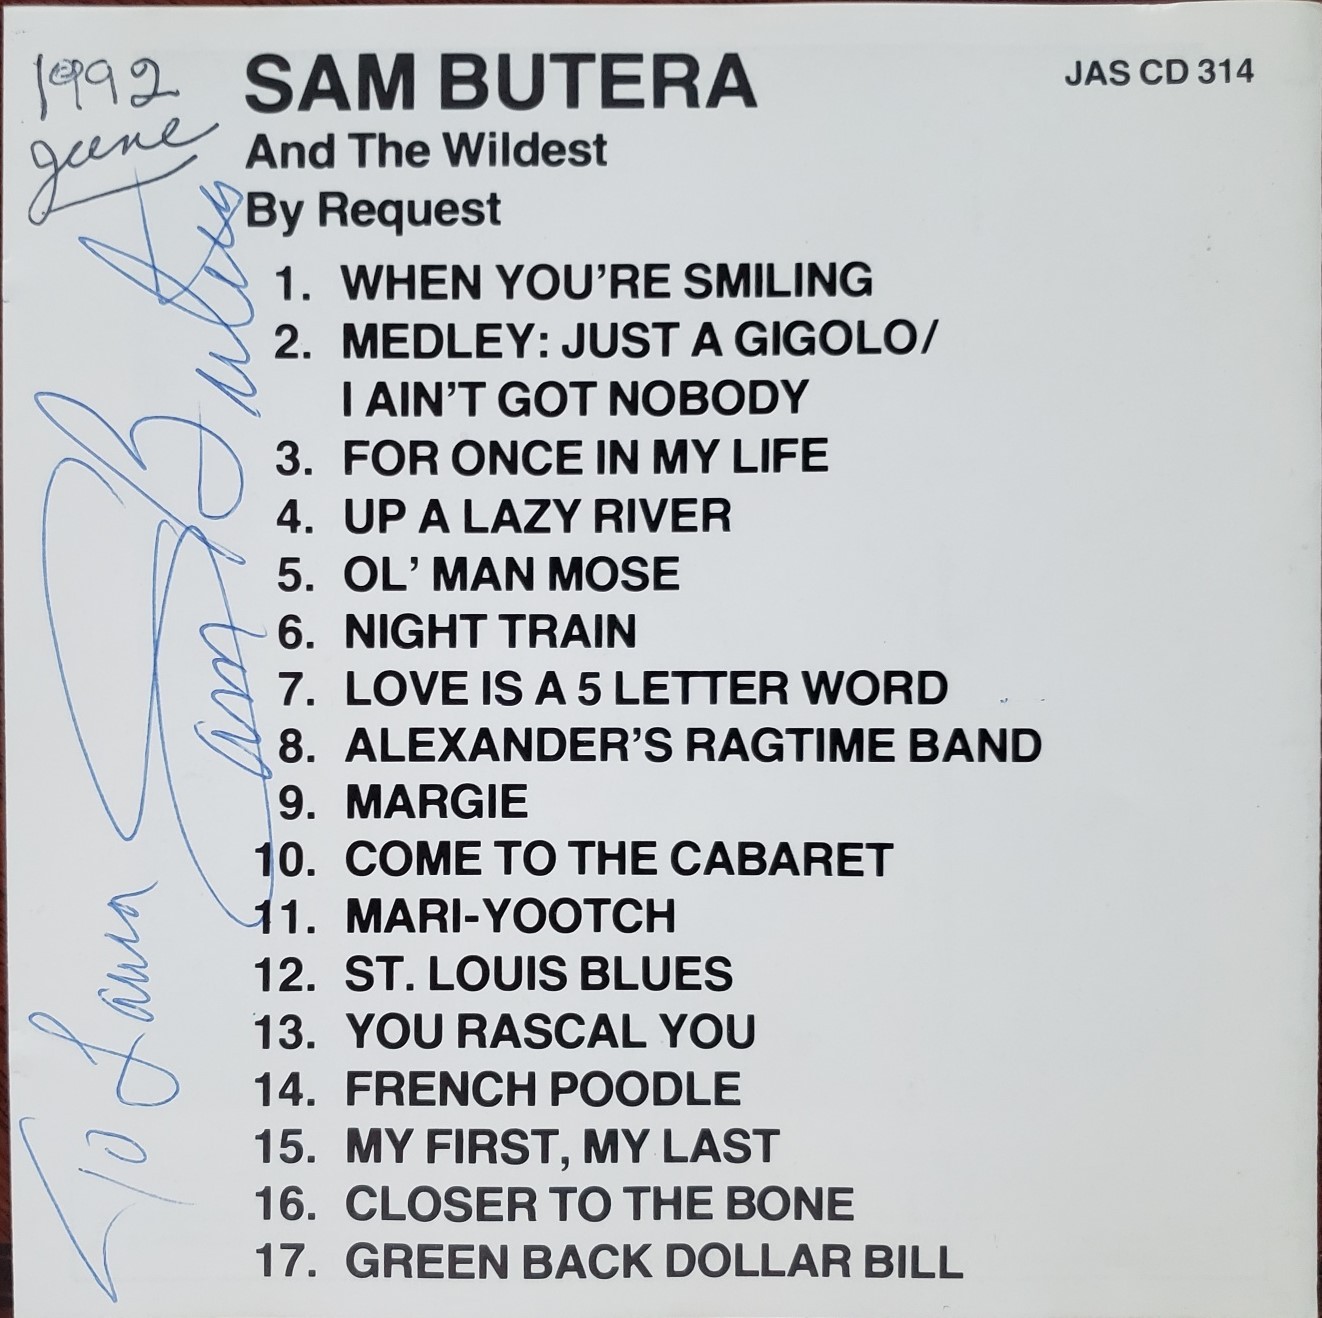 1992
June
SAM BUTERA
JAS CD 314
And The Wildest
By Request
1. WHEN YOU'RE SMILING
2. MEDLEY: JUST A GIGOLO/
I AIN'T GOT NOBODY
3. FOR ONCE IN MY LIFE
4. UP A LAZY RIVER
5. OL' MAN MOSE
6. NIGHT TRAIN
7. LOVE IS A 5 LETTER WORD
8. ALEXANDER'S RAGTIME BAND
9. MARGIE
10. COME TO THE CABARET
11. MARI-YOOTCH
12. ST. LOUIS BLUES
13. YOU RASCAL YOU
14. FRENCH POODLE
15. MY FIRST, MY LAST
16. CLOSER TO THE BONE
17. GREEN BACK DOLLAR BILL
To
Sam Butera